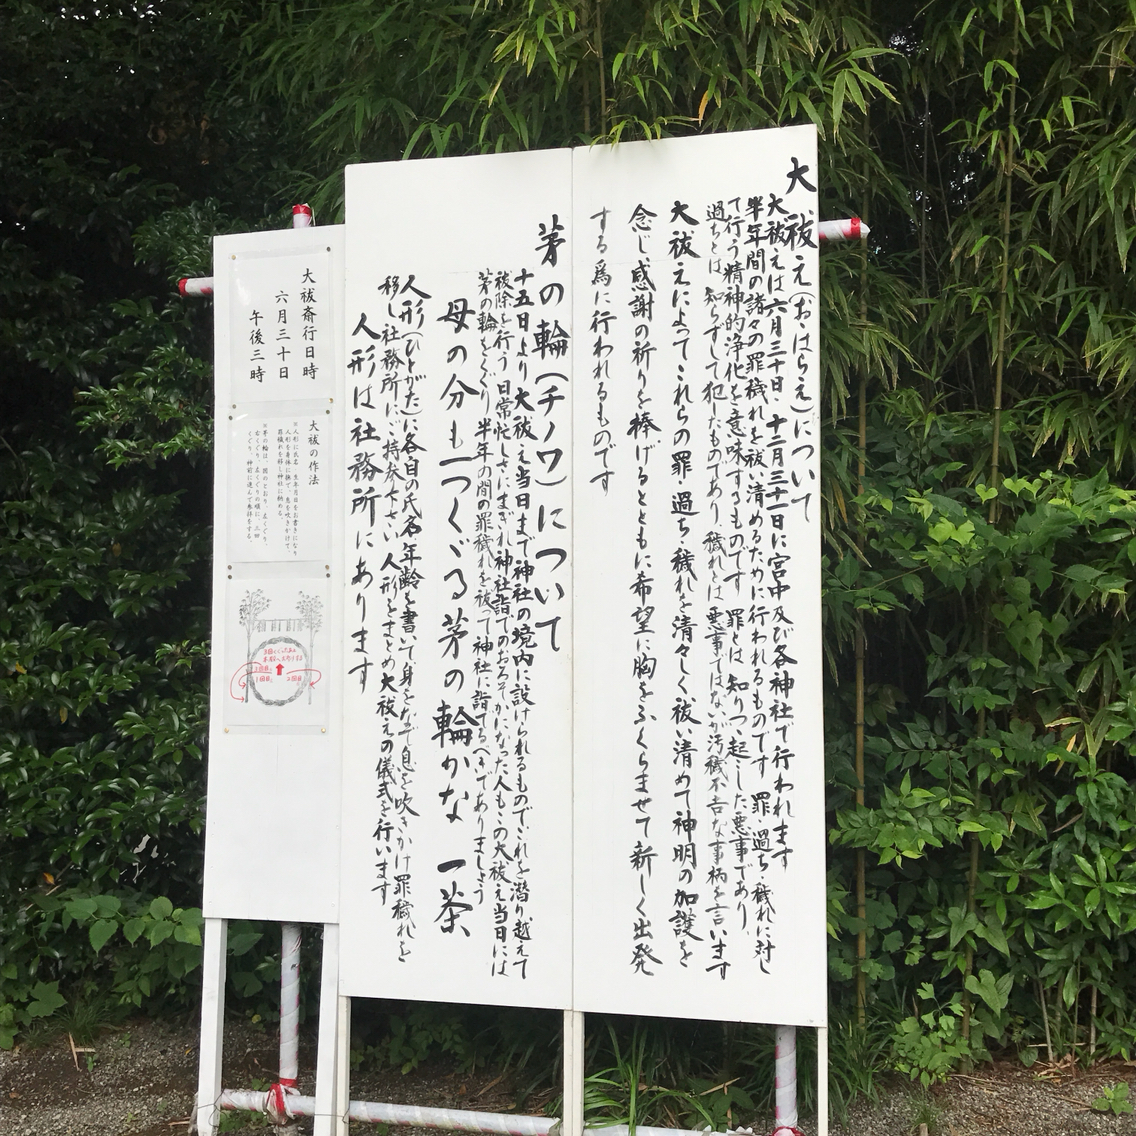 大祓え(おおはらえ)について
大祓えは六月三十日・十二月三十一日に宮中及び各神社で行われます
半年間の諸々の罪穢れを祓い清めるために行われるものです 罪・過ち・穢れに対し
て行う精神的浄化を意味するものです 罪とは知りつゝ起こした悪事であり、
過ちとは、知らずして犯したものであり、穢れとは悪事ではないが汚穢不吉な事柄を言います
大祓えによってこれらの罪・過ち・穢れを清々しく祓い清めて神明の加護を
念じ、感謝の祈りを捧げるとともに希望に胸をふくらませて新しく出発
する為に行われるものです
茅の輪(チノワ)について
十五日より大祓え当日まで神社の境内に設けられるものでこれを潜り越えて
祓除を行う 日常忙しさにまぎれ神社詣でのおろそかになった人もこの大祓え当日には
茅の輪もくぐり半年の間の罪穢れを祓って神社に詣でるべきでありましょう
母の分も一つくゞる茅の輪かな 一茶
人形(ひとがた)に各自の氏名年齢を書いて身をなで息を吹きかけ罪穢れを
移し社務所にご持参下さい 人形をまとめ大祓えの儀式を行います
人形は社務所にあります
大祓斎行日時
六月三十日
午後三時
大祓の作法
※人形に氏名・生年月日をお書きになり
人形を身体に撫で、息を吹きかけて、
罪穢れを移し神社に納める。
※茅の輪は、図のとおり、左くぐり、
右くぐり、左くぐりの順に、三回
くぐり、神前に進んで参拝をする。
1回目
2回目
3回目